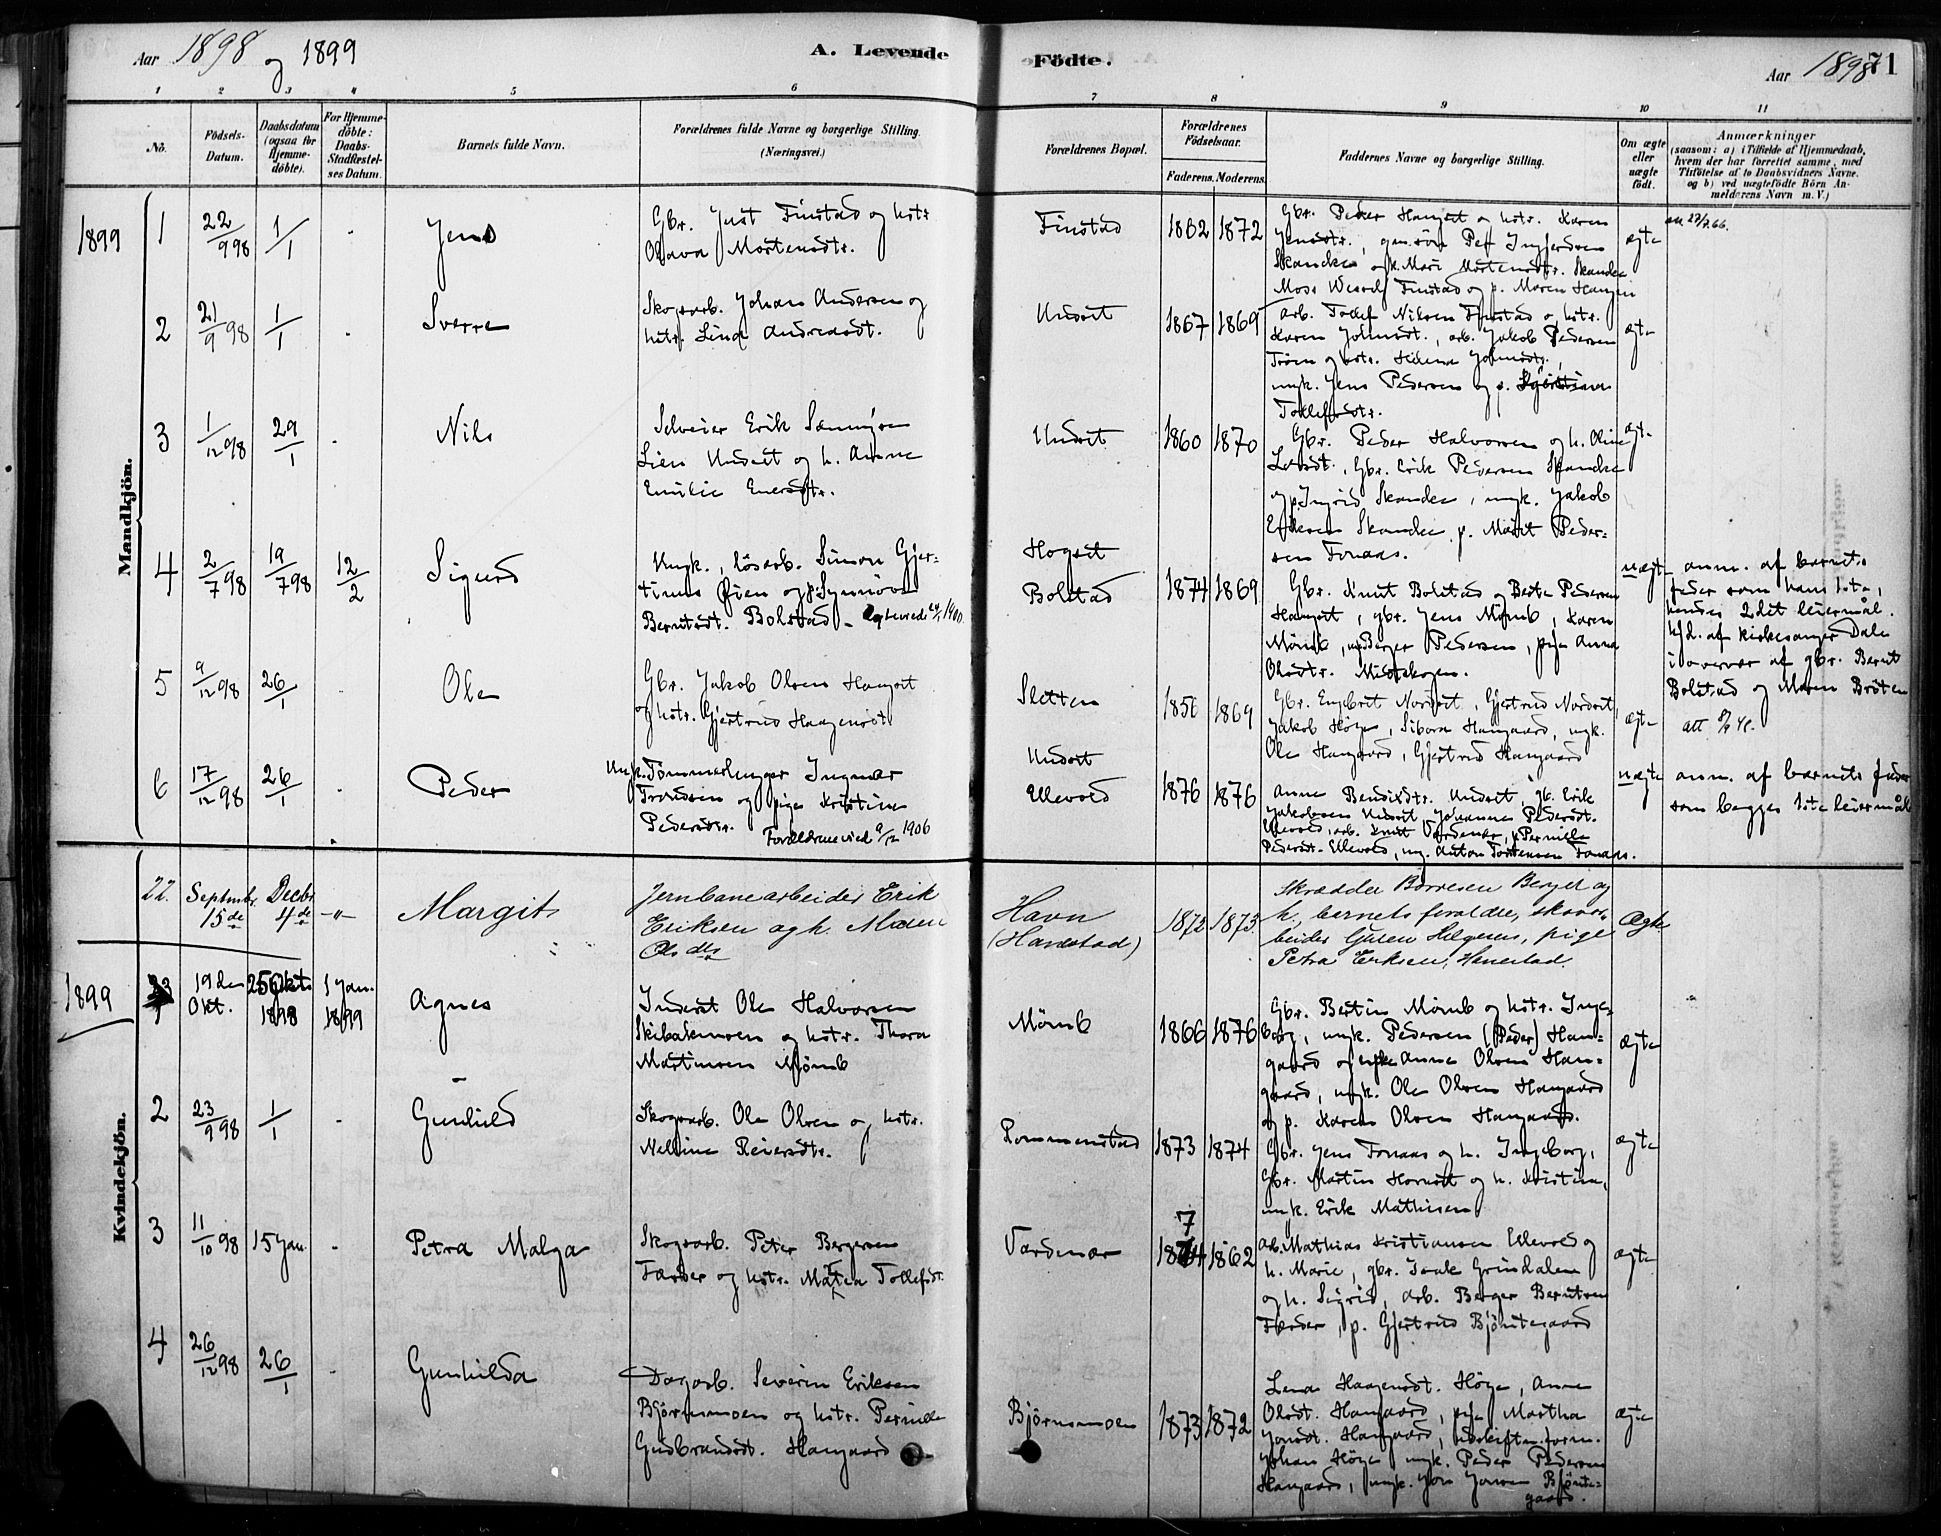 Aar 1898 og 1899
A. Levende
Födte.
Aar 1898
71
1 2 3 4 5 6 7 8 9 10 11
No.
Födsels-Datum.
Daabsdatum (ogsaa for Hjemme-döbte).
For Hjemme-döbte: Daabs-Stadfæstel-ses Datum.
Barnets fulde Navn.
Forældrenes fulde Navne og borgerlige Stilling.
(Næringsvei.)
Forældrenes Bopæl.
Forældrenes Födselsaar.
Faderens. Moderens.
Faddernes Navne og borgerlige Stilling.
Om ægte eller uægte födt.
Anmærkninger
(saasom: a) i Tilfælde af Hjemmedaab,
hvem der har forrettet samme, med
Tilföielse af to Daabsvidners Navne.
og b) ved uægtefödte Börn An-
melderens Navn m.V.)
Mandkjön.
1899 1 22/9 98 1/1 - Jens
Gbr. Just Finstad og hstr.
Olava Mortensdtr.
Finstad 1862 1872
Gbr. Peder Hangset og hstr. Karen
Jensdtr.,
Skancke og k. Mari Mortensdtr. Skancke
Finstad og p. Maren
ægte
2 21/9 98 1/1 - Sverre
Skogsarb. Johan Andersen og
hstr. Lina Andreasdt.
Undset 1867 1869
arb. Tollef Nilsen Finstad og hstr.
Karen Johnsdt., arb. Jakob Pedersen
Trøen og hstr. Helena Johnsdtr.,
ungk. Jens Pedersen og p.
Tollefsdtr.
ægte
3 1/12 98 29/1 - Nils
Selveier Erik
Lien Undset og h. Anne
Emilie Enersdtr.
Undset 1860 1870
Gbr. Peder Halvorsen og h. Oline
Larsdt., Gbr. Erik Pedersen Skancke
og p. Ingrid Skancke, ungk. Jakob
Eriksen Skancke, p. Marit Peder-
sen Fonaas.
ægt-
4 2/7 98 19/7 98 12/2 Sigurd
Ungk., lösarb. Simon Gjer-
tinus Øien og p. Synnöve
Berntsdt. Bolstad -
Hogset
Bolstad
1874 1869
Gbr. Knut Bolstad og Berte Pedersen
Hangset, gbr. Jens Mömb, Karen
Mömb, Berger Pedersen, pige Anna
Olsdtr. Midtskogen.
uægte
anm. af barnets
fader som hans 1ste,
hendes 2det leiermål.
Hjd. af kirkesanger Dale
i overvær af gbr. Bernt
Bolstad og Maren Bröten
5 9/12 98 26/1 - Ole
Gbr. Jakob Olsen Hangset
og hstr. Gjertrud Haagensdt
Sletten 1869
Gbr. Engebret Nordset, Gjertrud Nordset,
Jakob Höge, Hangaard, ungk.
Ole Hangaard, Gjertrud Hangaard
ægte
6 17/12 98 26/1 - Peder
Ungk. Tömmerhugger Ingvar
Trondsen og pige Kristine
Pedersdtr.
Forældrene vied 9/12 1906
Undset
Ellevold
1876 1876
Anne Bendixdtr. Undset, gk. Erik
Jakobsen Undset, Johanne Pedersdt.
Ellevold, arb. Knut Vardenær, p. Pernille
Pedersdt. Ellevold, ung. Anton Torstensen Fonaas.
uægte
anm. af barnets fader
som begges 1ste leiermål
22. Septmbr. 15de Decbr. 4de -"- Margit
Jernbanearbeider Erik
Eriksen og h. Maren
Olsdtr
Havn
(Hanestad)
1872 1873.
Skrædder Börresen Berget og
h, barnets foraldre, skovar-
beider Helgesen, pige
Petra Eriksen, Hanestad.
Ægte
Kvindekjön.
1899 1 19de Okt. 25 Okt 1898 1 Jan. 1899 Agnes
Inderst Ole Halvorsen
Skibakmoen og hstr. Thora
Martinsen Mömb
Mömb 1866 1876
Gbr. Bertin Mömb og hstr. Inge-
borg, ungk. Pedersen (Peder) Han-
gaard og Anne Olsen Han-
gaard, ungk. Ole Olsen Hangaard
og p. Karen Olsen Hangaard.
ægte
2 23/9 98 1/1 - Gunhild
Skogsarb. Ole Olsen og hstr.
Nelline Reiersdtr.
Rommenstad 1873 1874
Gbr. Jens Fonaas og h. Ingeborg,
Gbr. Martin Hornset og h. Kristine,
ungk. Erik Mathisen
ægte
3 11/10 98 15 Jan. - Petra Malga
Skogsarb. Peter Bergersen
Færder og hstr. Matea Tollefsdt.
Vardenær 1874 7 1862
Arb. Mathias Kristiansen Ellevold og
h. Marie, gbr. Isak Grindalen
og h. Sigrid, arb. Berger Berntsen
Færder, p. Gjertrud Björntegaard
ægte
4 26/12 98 26/1 - Gunhilda
Dagarb. Severin Eriksen
Björnsmoen og hstr. Pernille
Gudbrandsdt. Hangaard
Björnsmoen 1873 1872
Lena Haagensdt. Höge, Anne
Olsdt. Hangaard, pige Martha
Jonsdt. Hangaard, udskiftn.form.
Johan Höge, ungk. Peder Pedersen
Hangaard, ungk. Jon Jonsen Björnte-
gaard.
ægte